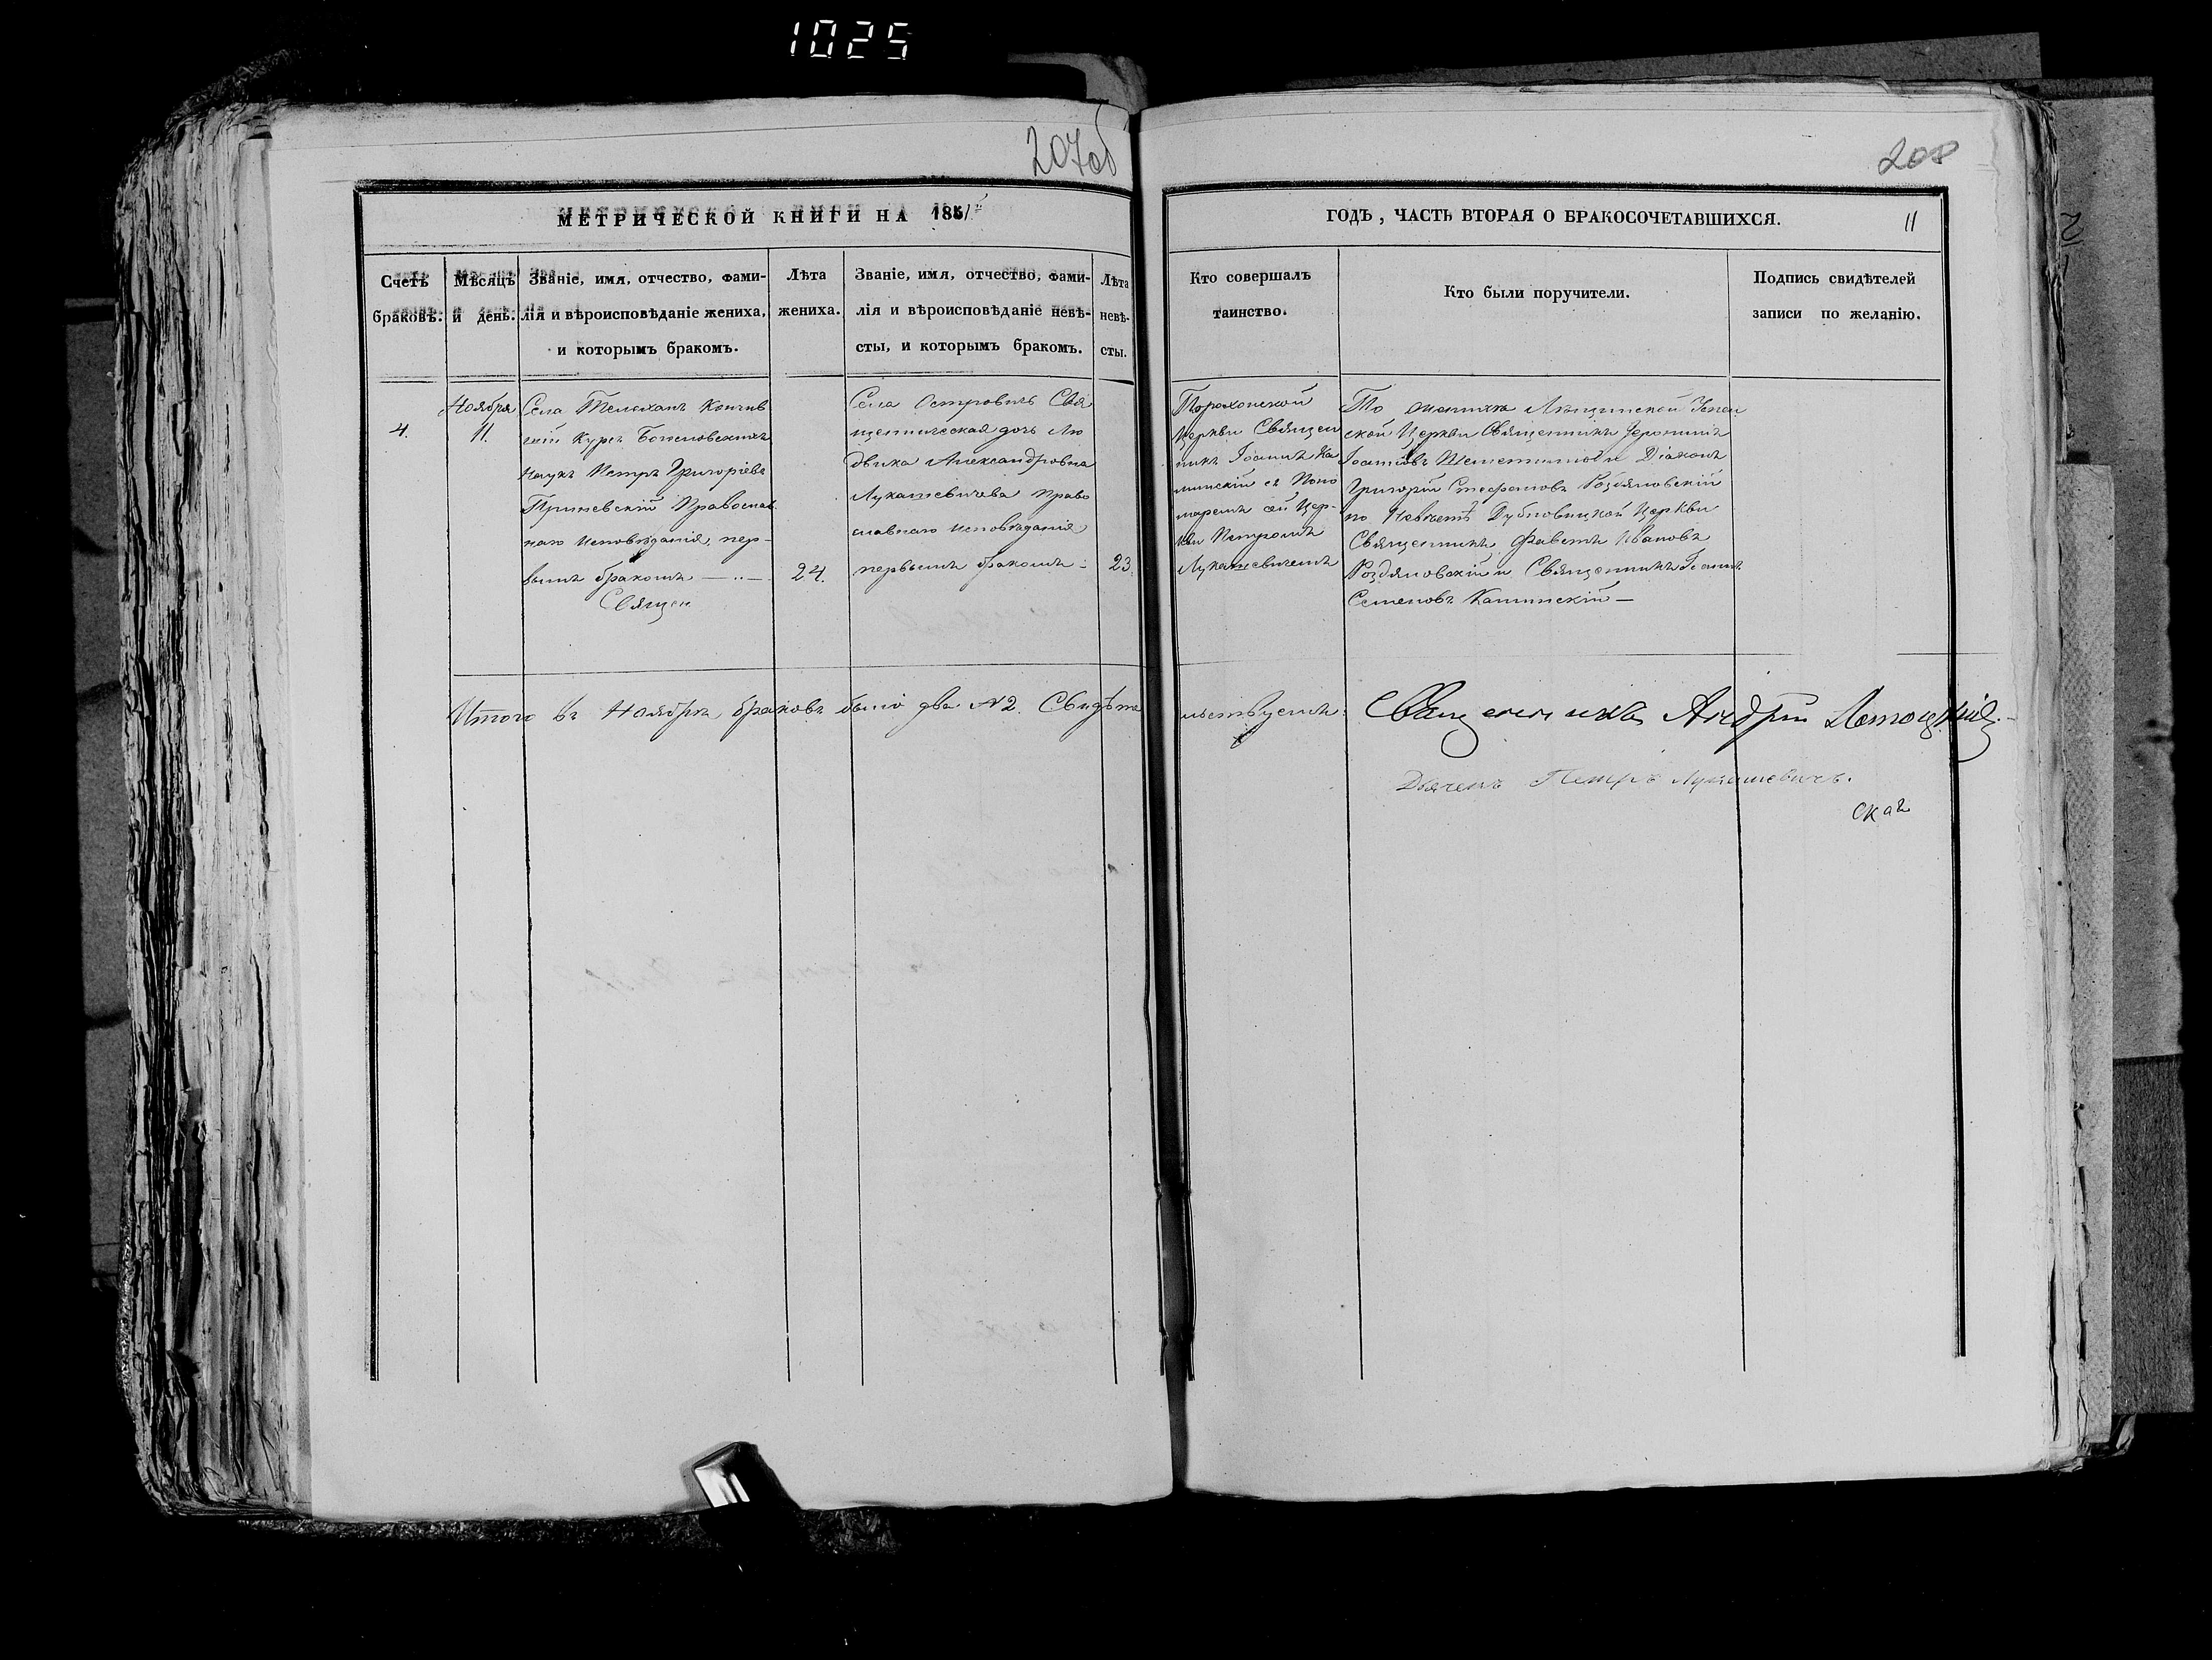 1025
207об
208
МЕТРИЧЕСКОЙ КНИГИ НА 1851
ГОДЪ, ЧАСТЬ ВТОРАЯ О БРАКОСОЧЕТАВШИХСЯ.
11
Счетъ
браковъ.
Мѣсяцъ
и день.
Званіе, имя, отчество, фами-
лія и вѣроисповѣданіе жениха,
и которымъ бракомъ.
Лѣта
жениха.
Званіе, имя, отчество, фами-
лія и вѣроисповѣданіе невѣ-
сты, и которымъ бракомъ.
Лѣта
невѣ-
сты.
Кто совершалъ
таинство.
Кто были поручители.
Подпись свидѣтелей
записи по желанію.
4.
Ноября
11.
Села Телеханъ Кончив
шій Курсъ Богословскихъ
Наукъ Петръ Григоріевъ
Православ
наго исповѣданія, пер-
вымъ бракомъ
Священ
24.
Села Островичъ Свя
щенническая дочь Лю
двика Александровна
Лукашевичова право
славнаго исповѣданія
первымъ бракомъ
23.
Порохонской
Церкви Священ
никъ Іоаннъ Ка
минскій съ Поно
маремъ сей Цер-
кви Петромъ
Лукашевичемъ
По женихѣ
ской Церкви Священникъ Іеронимъ
Іоанновъ и Діаконъ
Григорій Стефановъ Роздяловскій
по Невѣстѣ Церкви
Священникъ Ивановъ
Роздяловскій и Священникъ Іоаннъ
Семеновъ Каминскій
Итого въ Ноябрѣ браковъ было два №2. Свидѣте
льствуемъ: Священникъ Андрей
Дьячекъ Петръ Лукашевичъ.